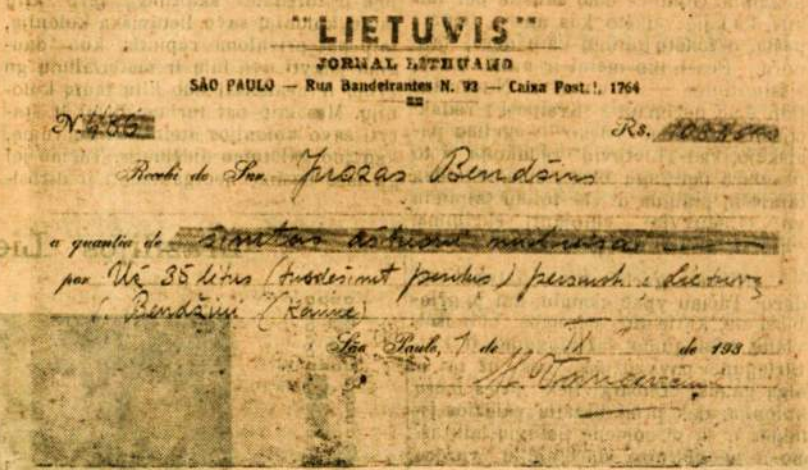 "LIETUVIS"
JORNAL LITHUANO
SÃO PAULO — Rua Bandeirantes N. 93 — Caixa Post.l, 1764
N. 486 Rs.
Recebi do Snr. Juozas Bendžius
a quantia de šimtas aštuoni milreisai
por Už 35 litus (trisdešimt penkis) persiųsti į Lietuvą
Bendžiui (Kaune)
São Paulo, 7 de IX de 193